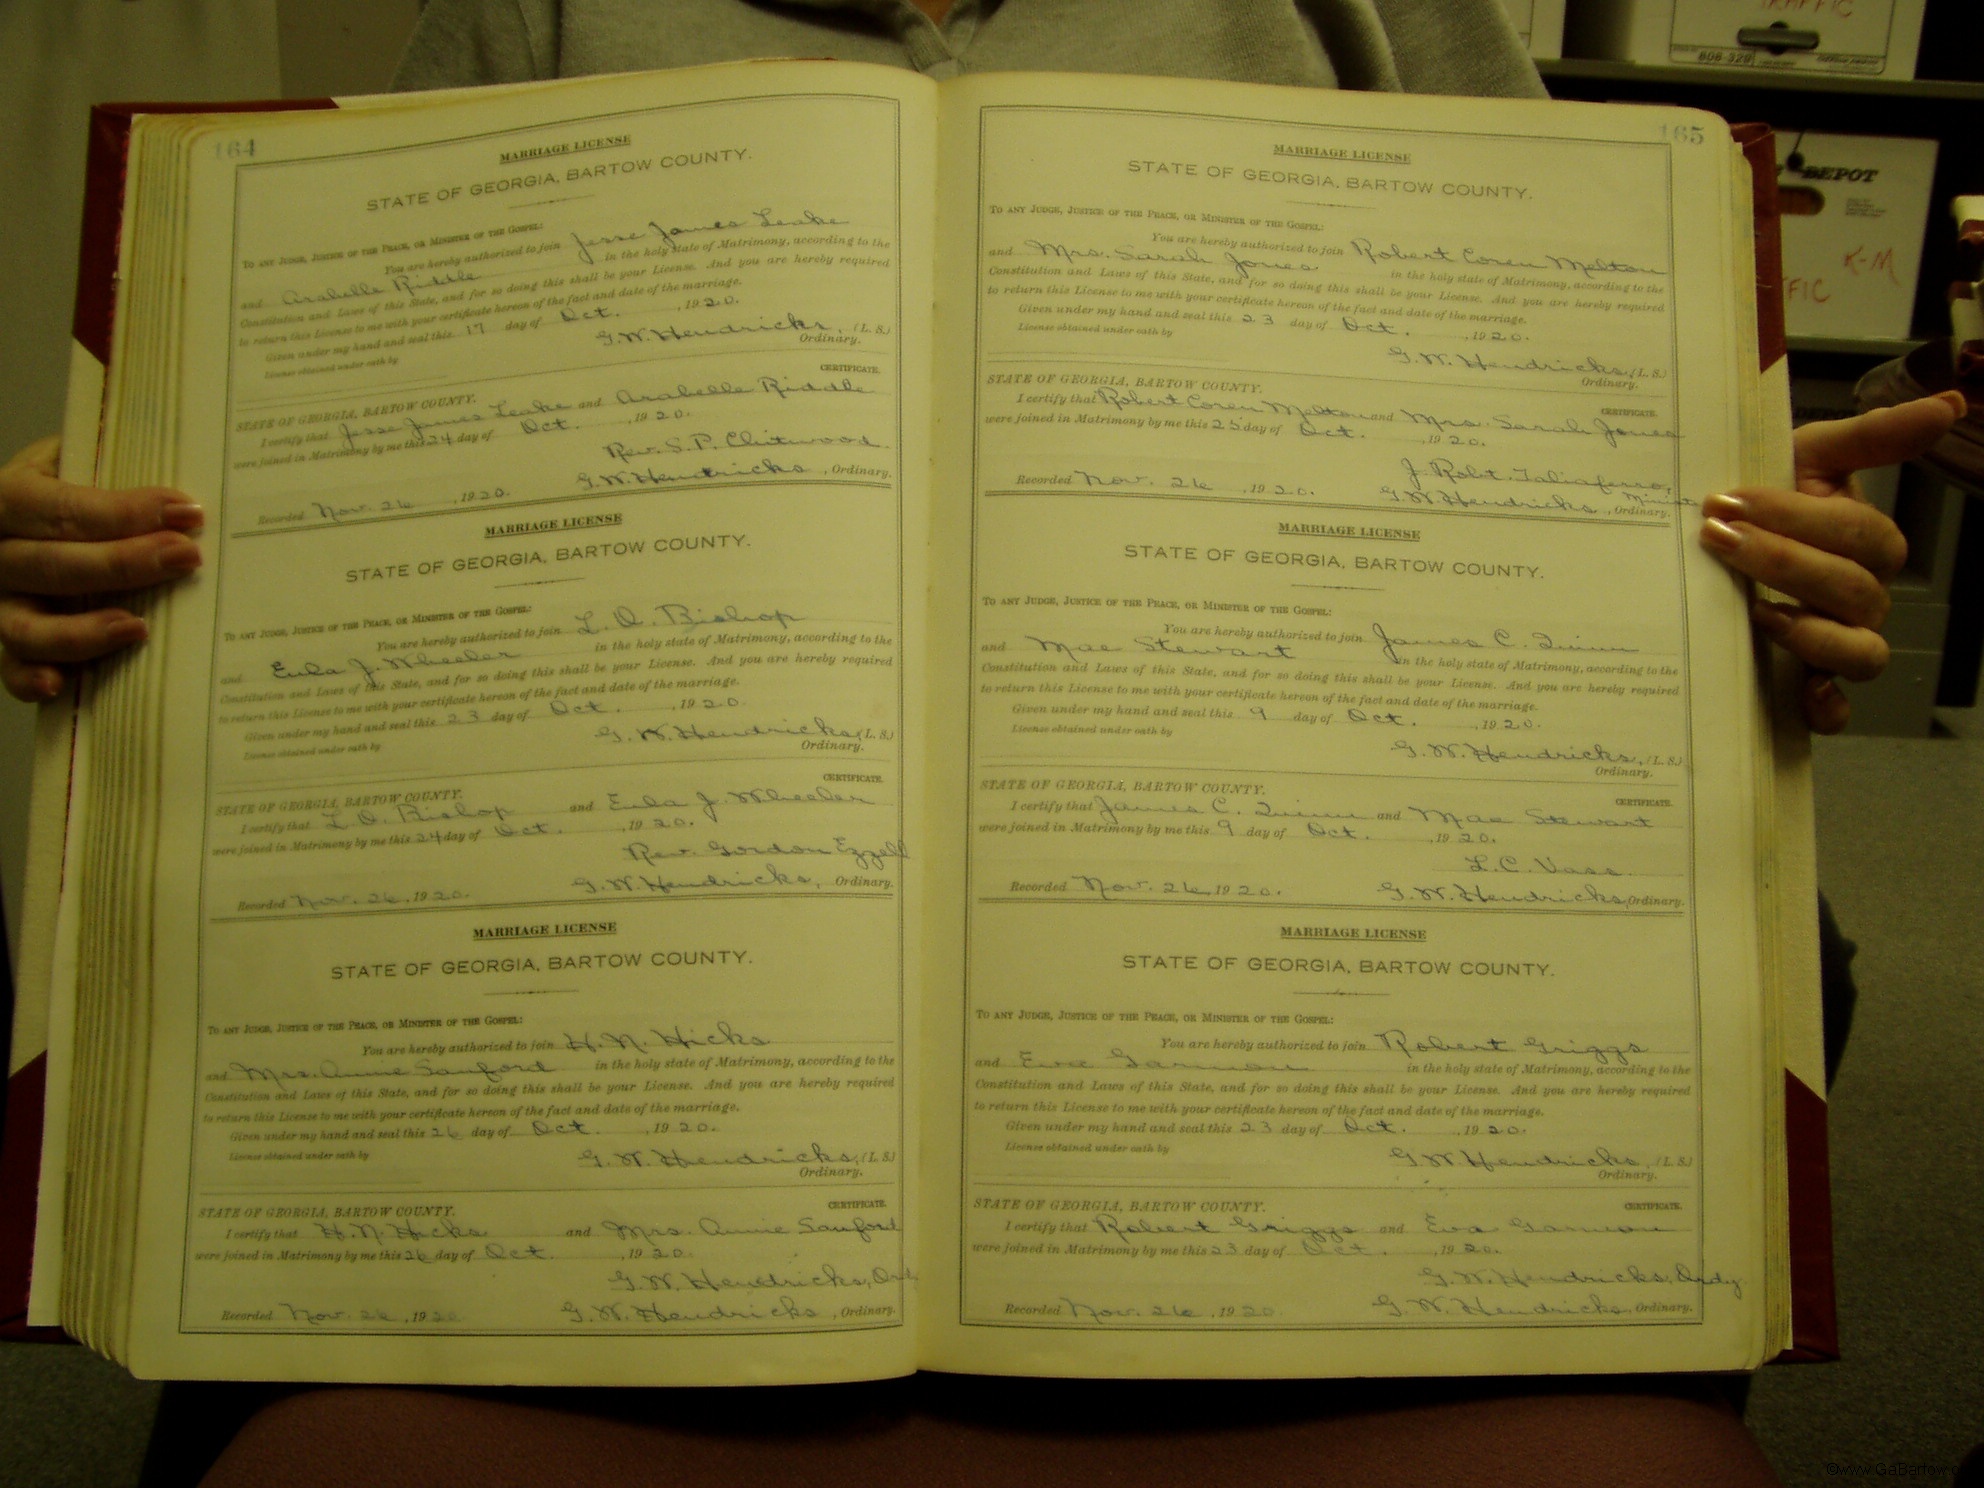 164
MARRIAGE LICENSE
STATE OF GEORGIA, BARTOW COUNTY.
TO ANY JUDGE, JUSTICE OF THE PEACE, OR MINISTER OF THE GOSPEL:
You are hereby authorized to join Jesse James Leake
and Arabelle Riddle in the holy state of Matrimony, according to the
Constitution and Laws of this State, and for so doing this shall be your License. And you are hereby required
to return this License to me with your certificate hereon of the fact and date of the marriage.
Given under my hand and seal this 17 day of Oct. , 1920.
License obtained under oath by
G.W. Hendricks, (L. S.)
Ordinary.
CERTIFICATE.
STATE OF GEORGIA, BARTOW COUNTY.
I certify that Jesse James Leake and Arabelle Riddle
were joined in Matrimony by me this 24 day of Oct. , 1920.
Rev. S.P. Chitwood.
Recorded Nov. 26 , 1920. G.W. Hendricks , Ordinary.
MARRIAGE LICENSE
STATE OF GEORGIA, BARTOW COUNTY.
TO ANY JUDGE, JUSTICE OF THE PEACE, OR MINISTER OF THE GOSPEL:
You are hereby authorized to join L. O. Bishop
and Eula J. Wheeler in the holy state of Matrimony, according to the
Constitution and Laws of this State, and for so doing this shall be your License. And you are hereby required
to return this License to me with your certificate hereon of the fact and date of the marriage.
Given under my hand and seal this 23 day of Oct. , 1920.
License obtained under oath by
G. W. Hendricks, (L. S.)
Ordinary.
CERTIFICATE.
STATE OF GEORGIA, BARTOW COUNTY.
I certify that L O. Bishop and Eula J. Wheeler
were joined in Matrimony by me this 24 day of Oct. , 1920.
Rev. Gordon Ezzell
Recorded Nov. 26 , 1920. G. W. Hendricks, Ordinary.
MARRIAGE LICENSE
STATE OF GEORGIA, BARTOW COUNTY.
TO ANY JUDGE, JUSTICE OF THE PEACE, OR MINISTER OF THE GOSPEL:
You are hereby authorized to join H. N. Hicks
and Mrs. Annie Sanford in the holy state of Matrimony, according to the
Constitution and Laws of this State, and for so doing this shall be your License. And you are hereby required
to return this License to me with your certificate hereon of the fact and date of the marriage.
Given under my hand and seal this 26 day of Oct. , 1920.
License obtained under oath by
G. W. Hendricks, (L. S.)
Ordinary.
CERTIFICATE.
STATE OF GEORGIA, BARTOW COUNTY.
I certify that H. N. Hicks and Mrs. Annie Sanford
were joined in Matrimony by me this 26 day of Oct. , 1920
G. W. Hendricks, Ord
Recorded Nov. 26 , 1920 G. W. Hendricks , Ordinary.
165
MARRIAGE LICENSE
STATE OF GEORGIA, BARTOW COUNTY.
TO ANY JUDGE, JUSTICE OF THE PEACE, OR MINISTER OF THE GOSPEL:
You are hereby authorized to join Robert Coren Melton
and Mrs. Sarah Jones in the holy state of Matrimony, according to the
Constitution and Laws of this State, and for so doing this shall be your License. And you are hereby required
to return this License to me with your certificate hereon of the fact and date of the marriage.
Given under my hand and seal this 23 day of Oct. , 1920.
License obtained under oath by
G. W. Hendricks, (L. S.)
Ordinary.
STATE OF GEORGIA, BARTOW COUNTY.
CERTIFICATE.
I certify that Robert Coren Melton and Mrs. Sarah Jones
were joined in Matrimony by me this 25 day of Oct. , 1920.
J. Robt. Taliaferro,
Minister
Recorded Nov. 26 , 1920. G. W. Hendricks , Ordinary.
MARRIAGE LICENSE
STATE OF GEORGIA, BARTOW COUNTY.
TO ANY JUDGE, JUSTICE OF THE PEACE, OR MINISTER OF THE GOSPEL:
You are hereby authorized to join James C. Quinn
and Mae Stewart in the holy state of Matrimony, according to the
Constitution and Laws of this State, and for so doing this shall be your License. And you are hereby required
to return this License to me with your certificate hereon of the fact and date of the marriage.
Given under my hand and seal this 9 day of Oct. , 1920.
License obtained under oath by
G. W. Hendricks, (L. S.)
Ordinary.
STATE OF GEORGIA, BARTOW COUNTY.
CERTIFICATE.
I certify that James C. Quinn and Mae Stewart
were joined in Matrimony by me this 9 day of Oct. , 1920.
L.C. Vass.
Recorded Nov. 26 , 1920. G. W. Hendricks, Ordinary.
MARRIAGE LICENSE
STATE OF GEORGIA, BARTOW COUNTY.
TO ANY JUDGE, JUSTICE OF THE PEACE, OR MINISTER OF THE GOSPEL:
You are hereby authorized to join Robert Griggs
and Eva Garmon in the holy state of Matrimony, according to the
Constitution and Laws of this State, and for so doing this shall be your License. And you are hereby required
to return this License to me with your certificate hereon of the fact and date of the marriage.
Given under my hand and seal this 23 day of Oct. , 1920.
License obtained under oath by
G. W. Hendricks, (L. S.)
Ordinary.
STATE OF GEORGIA, BARTOW COUNTY.
CERTIFICATE.
I certify that Robert Griggs and Eva Garmon
were joined in Matrimony by me this 23 day of Oct. , 1920.
G. W. Hendricks, Ordy.
Recorded Nov. 26 , 1920. G. W. Hendricks, Ordinary.
TRAFFIC
808-329
DEPOT
K-M
FIC
DEPOT
©www.GaBartow